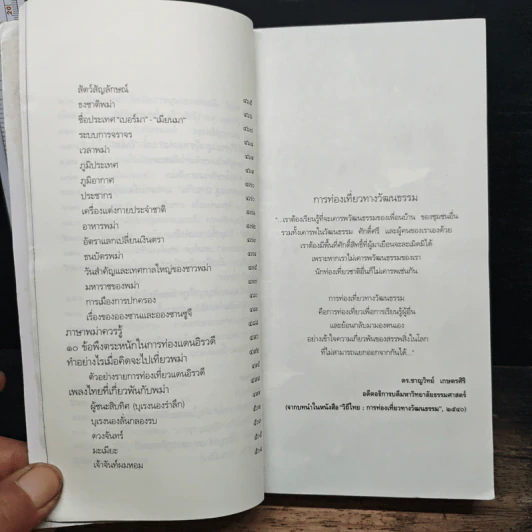 สัตว์สัญลักษณ์
ธงชาติพม่า
ชื่อประเทศ "เบอร์มา" - "เมียนมา"
ระบบการจราจร
เวลาพม่า
ภูมิประเทศ
ภูมิอากาศ
ประชากร
เครื่องแต่งกายประจำชาติ
อาหารพม่า
อัตราแลกเปลี่ยนเงินตรา
ธนบัตรพม่า
วันสำคัญและเทศกาลใหญ่ของชาวพม่า
มหาราชของพม่า
การเมืองการปกครอง
เรื่องของอองซานและอองซานซูจี
ภาษาพม่าควรรู้
๑๐ ข้อพึงตระหนักในการท่องแดนอิรวดี
ทำอย่างไรเมื่อคิดจะไปเที่ยวพม่า
ตัวอย่างรายการท่องเที่ยวแดนอิรวดี
เพลงไทยที่เกี่ยวพันกับพม่า
ผู้ชนะสิบทิศ (บุเรงนองรำลึก)
บุเรงนองลั่นกลองรบ
ดวงจันทร์
มะเมียะ
เจ้าจันท์ผมหอม
การท่องเที่ยวทางวัฒนธรรม
"...เราต้องเรียนรู้ที่จะเคารพวัฒนธรรมของเพื่อนบ้าน ของชุมชนอื่น
รวมทั้งเคารพในวัฒนธรรม ศักดิ์ศรี และผู้คนของเราเองด้วย
เราต้องมีพื้นที่ศักดิ์สิทธิ์ที่ผู้มาเยือนจะละเมิดมิได้
เพราะหากเราไม่เคารพวัฒนธรรมของเรา
นักท่องเที่ยวชาติอื่นก็ไม่เคารพเช่นกัน
การท่องเที่ยวทางวัฒนธรรม
คือการท่องเที่ยวเพื่อการเรียนรู้ผู้อื่น
และย้อนกลับมามองตนเอง
อย่างเข้าใจความเกี่ยวพันของสรรพสิ่งในโลก
ที่ไม่สามารถแยกออกจากกันได้..."
ดร.ชาญวิทย์ เกษตรศิริ
อดีตอธิการบดีมหาวิทยาลัยธรรมศาสตร์
(จากบทนำในหนังสือ "วิถีไทย : การท่องเที่ยวทางวัฒนธรรม", ๒๕๔๐)